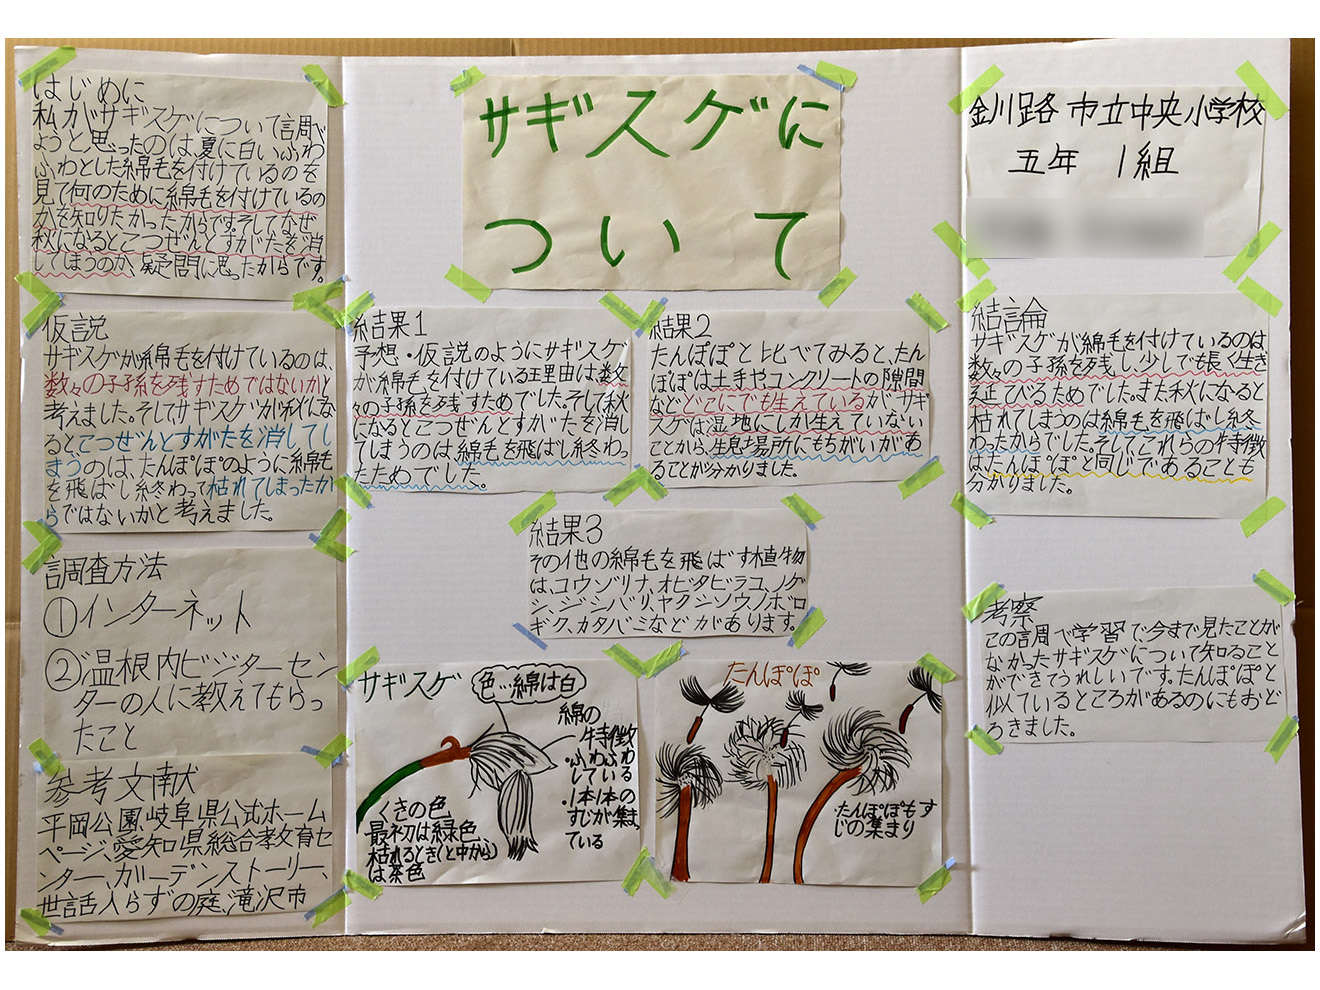 はじめに
私がサギスゲについて調べ
ようと思ったのは、夏に白いふわ
ふわとした綿毛を付けているのを
見て何のために綿毛を付けているの
かを知りたかったからです。そしてなぜ
秋になるとこつぜんとすがたを消
してしまうのか、疑問に思ったからです。
仮説
サギスゲが綿毛を付けているのは、
数々の子孫を残すためではないかと
考えました。そしてサギスゲが秋にな
るとこつぜんとすがたを消してし
まうのは、たんぽぽのように綿毛
を飛ばし終わって枯れてしまったか
らではないかと考えました。
調査方法
①インターネット
②温根内ビジターセン
ターの人に教えてもらっ
たこと
参考文献
平岡公園、岐阜県公式ホーム
ページ、愛知県総合教育セ
ンター、ガーデンストーリー、
世話人らずの庭、滝沢市
サギスゲに
ついて
結果1
予想・仮説のようにサギスゲ
が綿毛を付けている理由は数
々の子孫を残すためでした。そして秋
になるとこつぜんとすがたを消し
てしまうのは綿毛を飛ばし終わっ
たためでした。
結果2
たんぽぽと比べてみると、たん
ぽぽは土手やコンクリートの隙間
などどこにでも生えているがサギ
スゲは湿地にしか生えていない
ことから、生息場所にもちがいがあ
ることが分かりました。
結果3
その他の綿毛を飛ばす植物
は、コウゾリナ、オビタビラコ、ノゲ
シ、ジシバリ、ヤクシソウ、ノボロ
ギク、カタバミなどがあります。
サギスゲ
色…綿は白
綿の
特徴
・ふわふわ
している
・1本1本の
すじが集まっ
ている
くきの色
最初は緑色、
枯れるとき(と中から)
は茶色
たんぽぽ
たんぽぽもす
じの集まり
釧路市立中央小学校
五年 1組
結論
サギスゲが綿毛を付けているのは
数々の子孫を残し、少しでも長く生き
延びるためでした。また秋になると
枯れてしまうのは綿毛を飛ばし終
わったからでした。そしてこれらの特徴
はたんぽぽと同じであることも
分かりました。
考察
この調べ学習で今まで見たことが
なかったサギスゲについて知ること
ができてうれしいです。たんぽぽと
似ているところがあるのにもおど
ろきました。